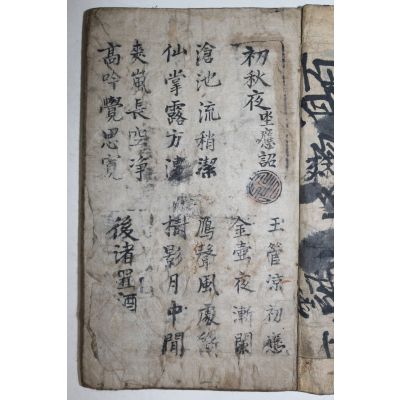 初秋夜坐應詔
玉管涼初應
金壺夜漸闌
滄池流稍潔
仙掌露方
鴈聲風處斷
樹影月中間
爽嵐長空淨
高吟覺思寬
後諸置酒